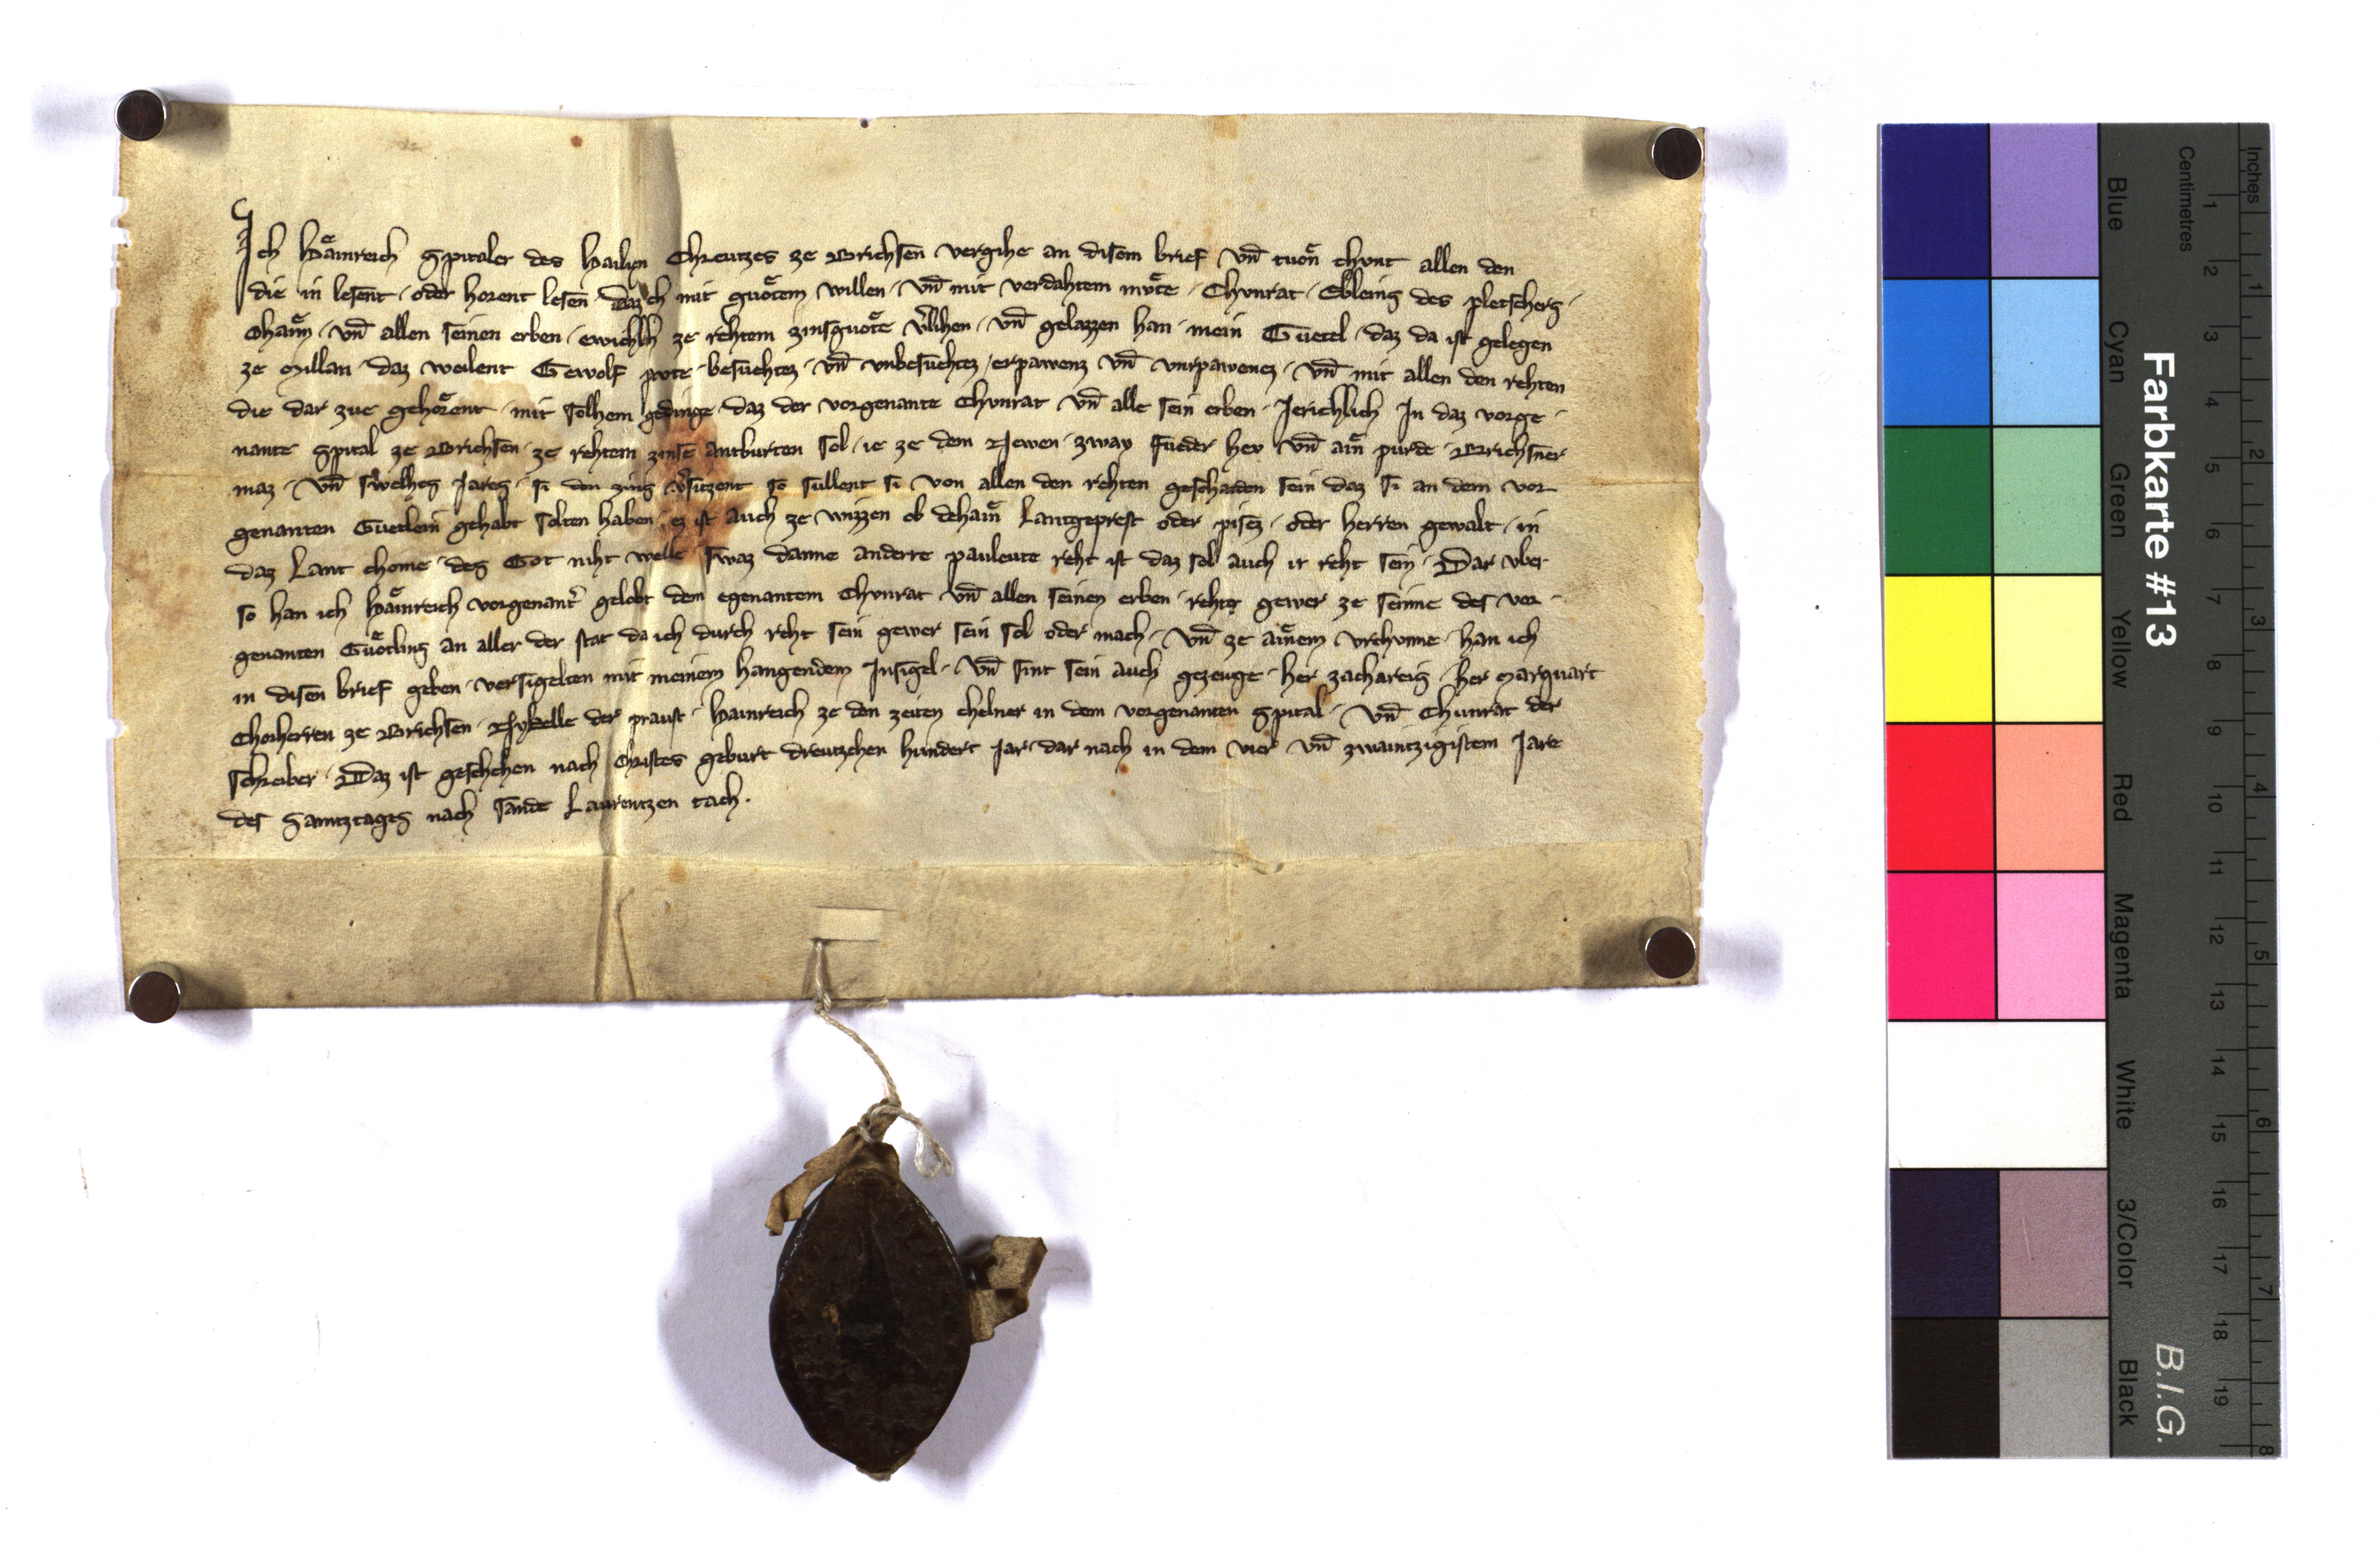 Ich Haͤinreich Spitaler des Hailigen Chreutzes ze Brichsen vergihe an disem brief vn̄ tuͦn chunt allen den
die in lesent · oder horent lesen daz ich mit guͦtem willen · vn̄ mit verdahtem muͦte · Chvnrat · Ebleins des pletschers ·
Ohaim · vn̄ allen seinen erben · ewichlich ze rehtem zinsguͦte v̓lihen · vn̄ gelazzen han · mein Guetel · daz da ist gelegen
ze Millan · daz weilent Gewolf pwte · besuehtez · vn̄ vnbesuehtez / erpawenz vn̄ vnrpawenez · vn̄ mit allen den rehten
die dar zue gehoͤrent · mit solhem gedinge · daz der vorgenante Chvnrat vn̄ alle sein erben · Jerichlich In daz vorge ·
nante Spital ze Brichsen · ze rehtem zinse antburten sol · ie ze dem Newen · zway fueder hev vn̄ ain purde · Brichsner
maz · vn̄ swelhes Jares · si den zins v̓sitzent so sullent si von allen den rehten geschaiden sein daz si an dem vor
genanten Guetlein gehabt solten haben · ez ist auch ze wizzen ob dehain Lantgeprest oder pisez · oder herren gewalt · in
daz Lant chome · des Got niht welle swaz danne anderre pauleute reht ist daz sol auch ir reht sein · Dar vber
so han ich Haͤinreich vorgenant̓ gelobt dem egenantem Chvnrat vn̄ allen seinen erben · rehter gewer ze seinne des vor ·
genanten Guͦtlins an aller der stat da ich durch reht sein gewer sein sol oder mach · vn̄ ze ainem vrchvnne · han ich
in disen brief geben · versigelten mit meinem hangendem Insigel · vn̄ sint sein auch gezeuge · her zachareis · her Marquart
Chorherren ze Brichsen · Nykelle der praust · Hainreich ze den zeiten chelner in dem vorgenanten Spital · vn̄ Chunrat der
schreiber · Daz ist geschehen nach Christes geburt dreutzehen hundert Jar · dar nach in dem vier vn̄ zwaintzigistem Jare
des Samtztages nach sande Laurentzen tach ·
Farbkarte #13
B.I.G.
Inches
Centimetres
Blue
Cyan
Green
Yellow
Red
Magenta
White
3/Color
Black
1 2 3 4 5 6 7 8 9 10 11 12 13 14 15 16 17 18 19
1 2 3 4 5 6 7 8